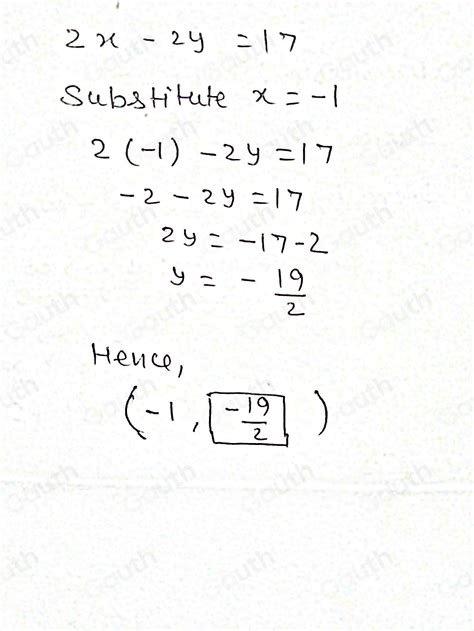 2x - 2y = 17
Substitute x = -1
2 (-1) - 2y = 17
-2 - 2y = 17
2y = -17-2
y = - 19/2
Hence,
(-1, -19/2 )
Gauth